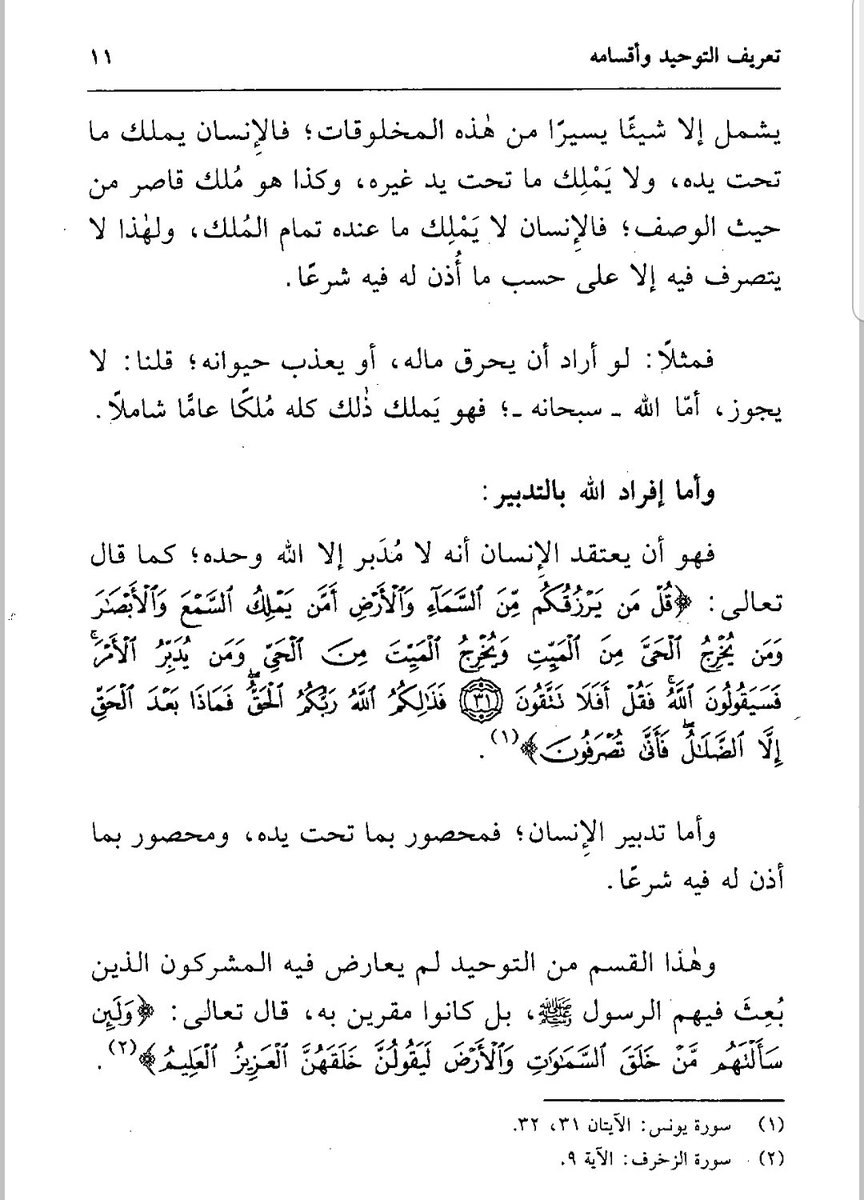 تعريف التوحيد وأقسامه ١١
يشمل إلا شيئًا يسيرًا من هٰذه المخلوقات؛ فالإِنسان يملك ما
تحت يده، ولا يَمْلِك ما تحت يد غيره، وكذا هو مُلك قاصر من
حيث الوصف؛ فالإِنسان لا يَمْلِك ما عنده تمام المُلك، ولهٰذا لا
يتصرف فيه إلا على حسب ما أُذن له فيه شرعًا.
فمثلًا: لو أراد أن يحرق ماله، أو يعذب حيوانه؛ قلنا: لا
يجوز، أمّا الله ـ سبحانه ـ؛ فهو يَملك ذٰلك كله مُلكًا عامًّا شاملًا.
وأما إفراد الله بالتدبير:
فهو أن يعتقد الإِنسان أنه لا مُدَبر إلا الله وحده؛ كما قال
تعالى: ﴿قُلْ مَن يَرْزُقُكُم مِّنَ السَّمَآءِ وَالْأَرْضِ أَمَّن يَمْلِكُ السَّمْعَ وَالْأَبْصَٰرَ
وَمَن يُخْرِجُ الْحَىَّ مِنَ الْمَيِّتِ وَيُخْرِجُ الْمَيِّتَ مِنَ الْحَيِّ وَمَن يُدَبِّرُ الْأَمْرَ ۚ
فَسَيَقُولُونَ اللَّهُ ۚ فَقُلْ أَفَلَا نَتَّقُونَ ﴿٣١﴾ فَذَٰلِكُمُ اللَّهُ رَبُّكُمُ الْحَقُّ ۖ فَمَاذَا بَعْدَ الْحَقِّ
إِلَّا الضَّلَٰلُ ۖ فَأَنَّىٰ تُصْرَفُونَ﴾(١).
وأما تدبير الإِنسان؛ فمحصور بما تحت يده، ومحصور بما
أذن له فيه شرعًا.
وهٰذا القسم من التوحيد لم يعارض فيه المشركون الذين
بُعِثَ فيهم الرسول ﷺ، بل كانوا مقرين به، قال تعالى: ﴿وَلَئِن
سَأَلْتَهُم مَّنْ خَلَقَ السَّمَٰوَٰتِ وَالْأَرْضَ لَيَقُولُنَّ خَلَقَهُنَّ الْعَزِيزُ الْعَلِيمُ﴾(٢).
(١) سورة يونس: الآيتان ٣١، ٣٢.
(٢) سورة الزخرف: الآية ٩.